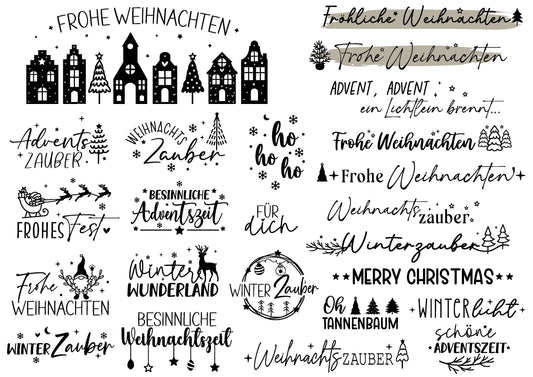 FROHE WEIHNACHTEN
Advents
ZAUBER
WEIHNACHTS
Zauber
ho
ho
ho
FROHES Fest
BESINNLICHE
Adventszeit
FÜR
dich
Frohe
WEIHNACHTEN
Winter
WUNDERLAND
WINTER Zauber
WINTER Zauber
BESINNLICHE
Weihnachtszeit
Weihnachts ZAUBER
Fröhliche Weihnachten
Frohe Weihnachten
ADVENT, ADVENT
ein Lichtlein brennt...
Frohe Weihnachten
Frohe Weihnachten
Weihnachts
zauber
Winterzauber
MERRY CHRISTMAS
Oh
TANNENBAUM
WINTER licht
schöne
ADVENTSZEIT